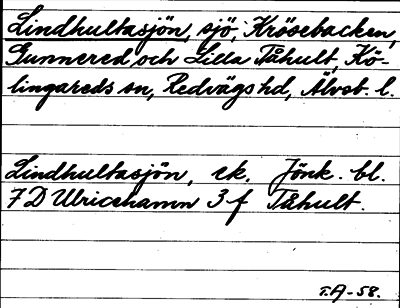 Lindhultasjön, sjö, Krösebacken,
Gunnered och Lilla Tåhult, Kö-
lingareds sn, Redvägs hd, Älvsb. l.
Lindhultasjön, ek. Jönk. bl.
7 D Ulricehamn 3 f Tåhult.
T.A-58.